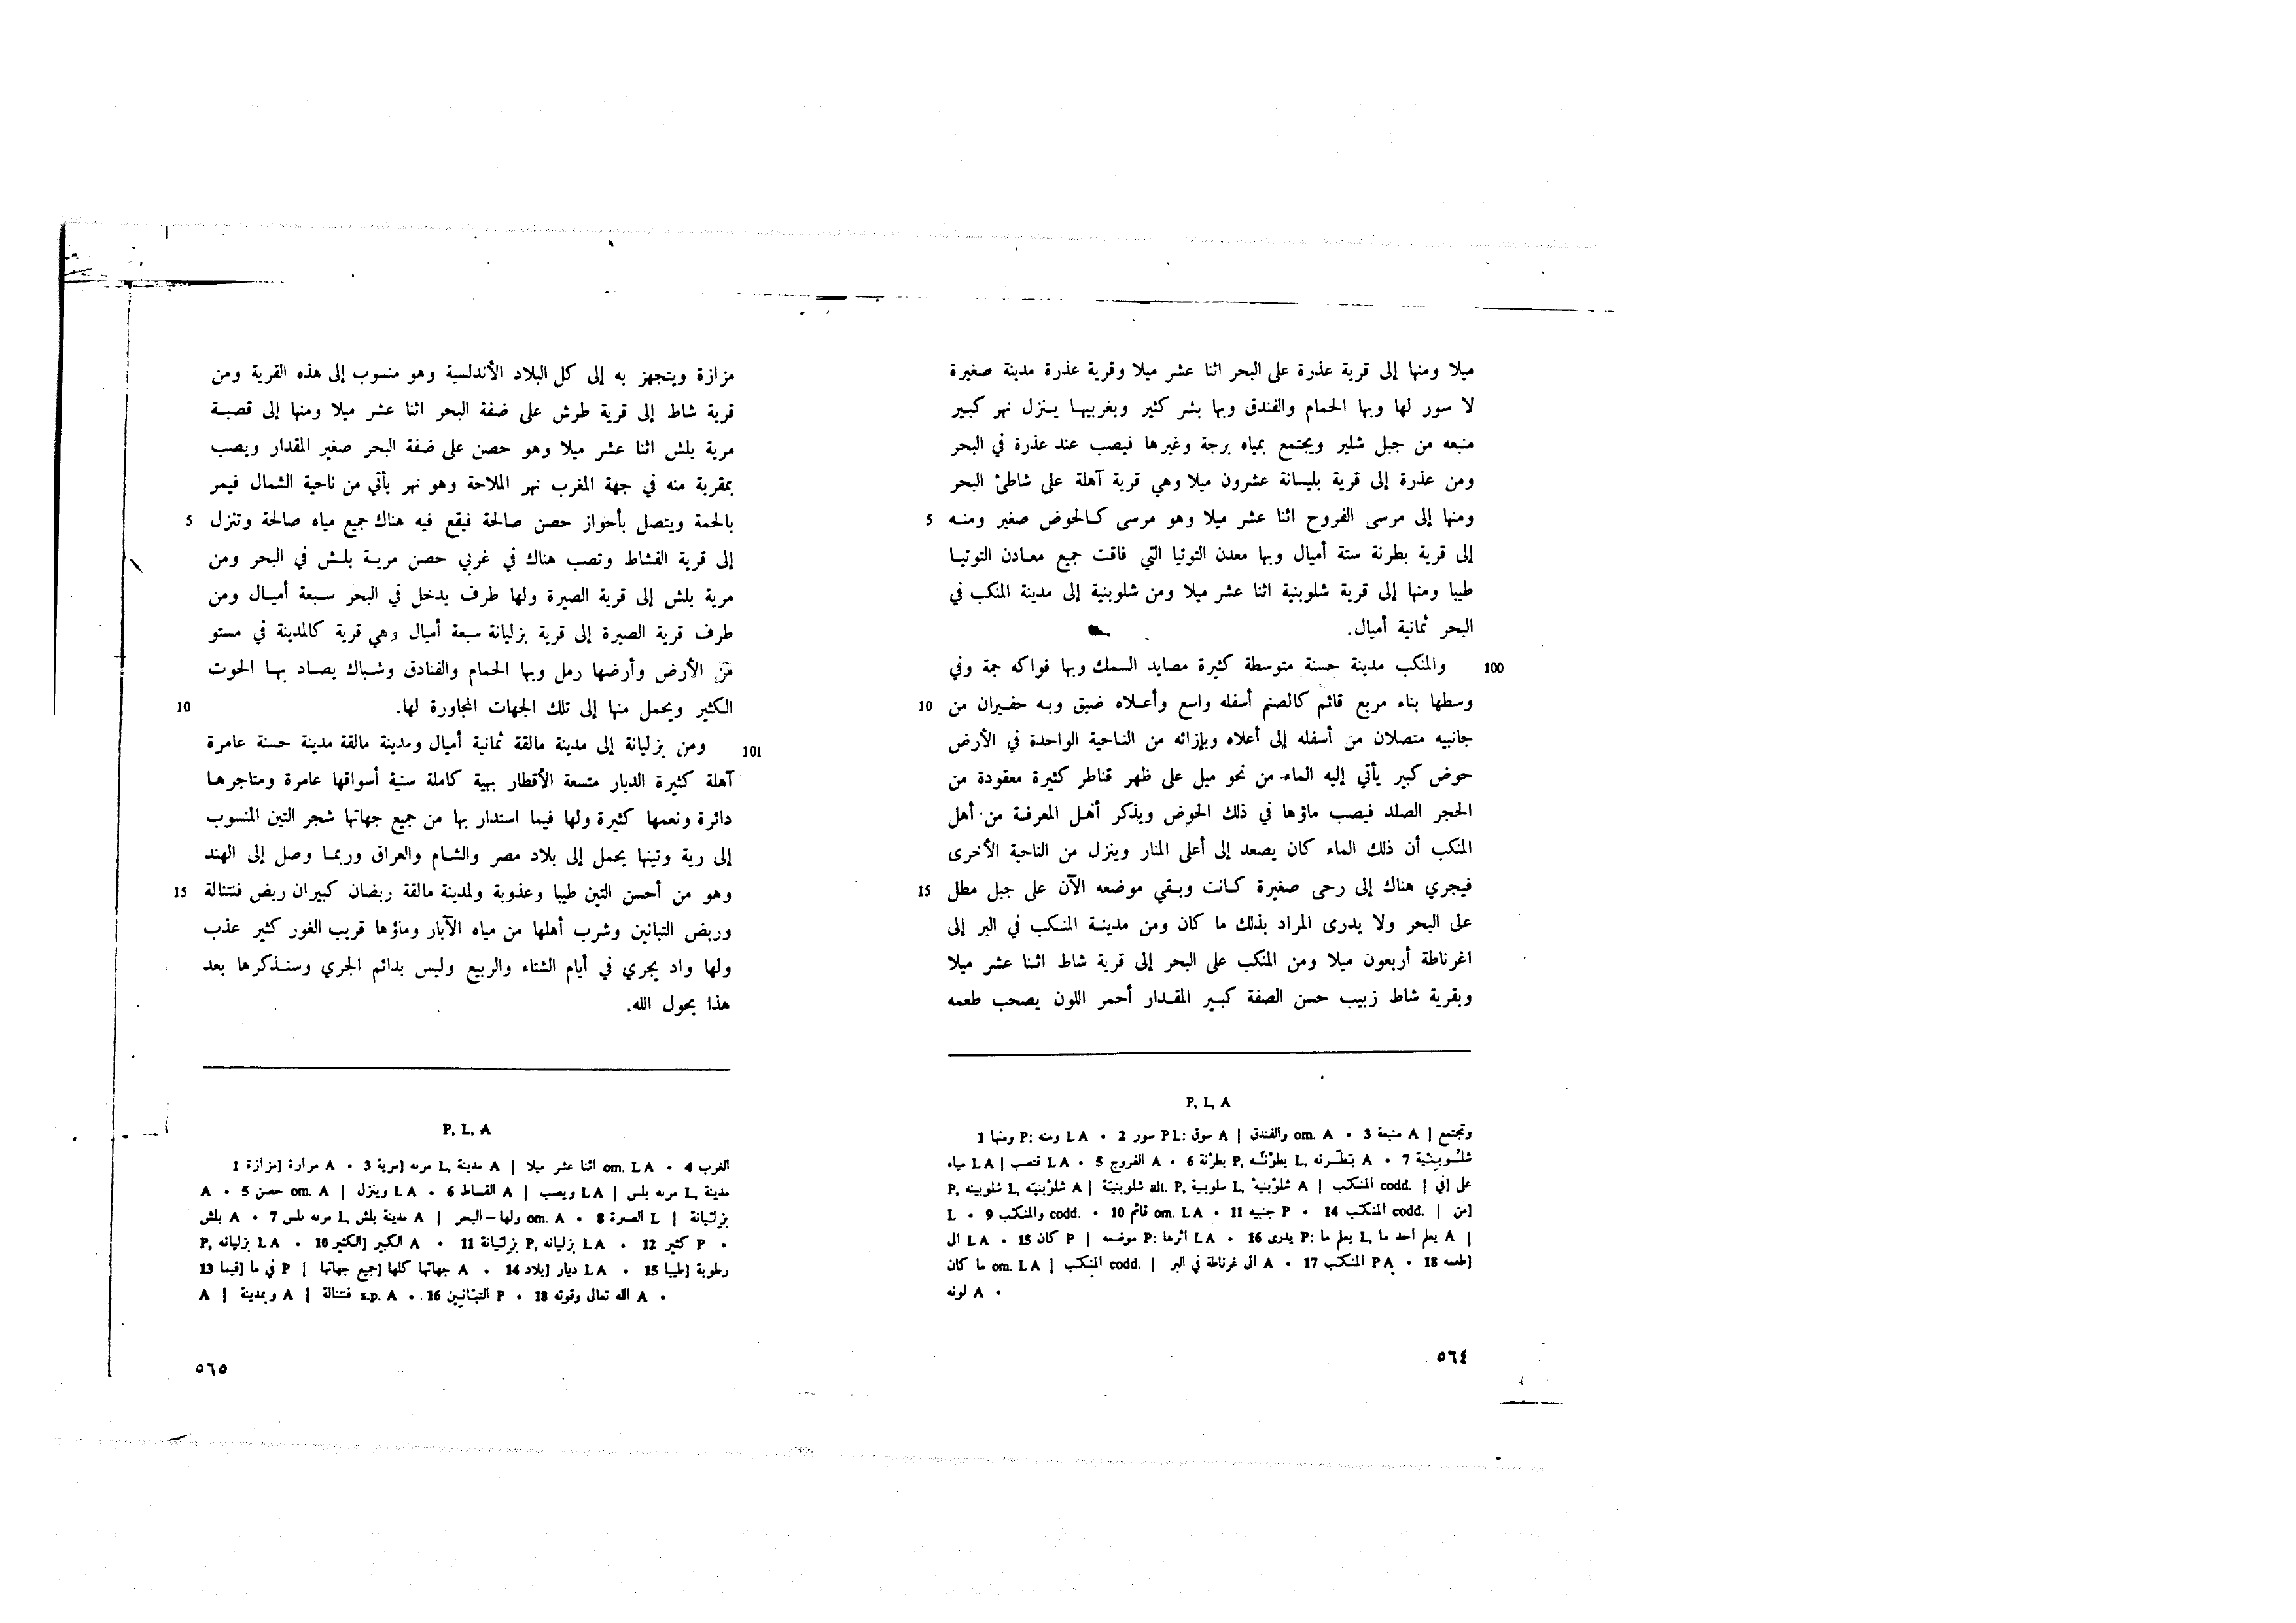 ميلا ومنها إلى قرية عذرة على البحر اثنا عشر ميلا وقرية عذرة مدينة صغيرة
لا سور لها وبها الحمام والفندق وبها بشر كثير وبغربيها ينزل نهر كبير
منبعه من جبل شلير ويجتمع بمياه برجة وغيرها فيصب عند عذرة في البحر
ومن عذرة إلى قرية بليسانة عشرون ميلا وهي قرية آهلة على شاطئ البحر
5 ومنها إلى مرسى الفروح اثنا عشر ميلا وهو مرسى كالحوض صغير ومنه
إلى قرية بطرنة ستة أميال وبها معدن التوتيا التي فاقت جميع معادن التوتيا
طيبا ومنها إلى قرية شلوبنية اثنا عشر ميلا ومن شلوبنية إلى مدينة المنكب في
البحر ثمانية أميال.
100 والمنكب مدينة حسنة متوسطة كثيرة مصايد السمك وبها فواكه جمة وفي
10 وسطها بناء مربع قائم كالصنم أسفله واسع وأعلاه ضيق وبه حفيران من
جانبيه متصلان من أسفله إلى أعلاه وبإزائه من الناحية الواحدة في الأرض
حوض كبير يأتي إليه الماء من نحو ميل على ظهر قناطر كثيرة معقودة من
الحجر الصلد فيصب ماؤها في ذلك الحوض ويذكر أهل المعرفة من أهل
المنكب أن ذلك الماء كان يصعد إلى أعلى المنار وينزل من الناحية الأخرى
15 فيجري هناك إلى رحى صغيرة كانت وبقي موضعه الآن على جبل مطل
على البحر ولا يدرى المراد بذلك ما كان ومن مدينة المنكب في البر إلى
اغرناطة أربعون ميلا ومن المنكب على البحر إلى قرية شاط اثنا عشر ميلا
وبقرية شاط زبيب حسن الصفة كبير المقدار أحمر اللون يصحب طعمه
P, L, A
1 ومنها P: ومنه LA • 2 سور PL: سوق A | والفندق om. A • 3 منبعة A | وتجتمع
LA | مياه فتصب LA • 5 الفروج A • 6 بطرْنة P,
codd. المنكب | في] على
codd. والمنكب 9 • 10 قائم om. LA • 11 جنبيه P • 14 المنكب codd. | من]
LA • 15 كان P | موضعه P: اثرها LA • 16 يدرى P: يعلم ما L, يعلم احد ما A |
ما كان om. LA | المنكب codd. | الى غرناطة في البر A • 17 المنكب PA • 18 طعمه]
لونه A •
٥٦٤
مزازة ويتجهز به إلى كل البلاد الأندلسية وهو منسوب إلى هذه القرية ومن
قرية شاط إلى قرية طرش على ضفة البحر اثنا عشر ميلا ومنها إلى قصبة
مرية بلش اثنا عشر ميلا وهو حصن على ضفة البحر صغير المقدار ويصب
بمقربة منه في جهة المغرب نهر الملاحة وهو نهر يأتي من ناحية الشمال فيمر
5 بالحمة ويتصل بأحواز حصن صالحة فيقع فيه هناك جميع مياه صالحة وتنزل
إلى قرية الفشاط وتصب هناك في غربي حصن مرية بلش في البحر ومن
مرية بلش إلى قرية الصيرة ولها طرف يدخل في البحر سبعة أميال ومن
طرف قرية الصيرة إلى قرية بزليانة سبعة أميال وهي قرية كالمدينة في مستو
من الأرض وأرضها رمل وبها الحمام والفنادق وشباك يصاد بها الحوت
10 الكثير ويحمل منها إلى تلك الجهات المجاورة لها.
101 ومن بزليانة إلى مدينة مالقة ثمانية أميال ومدينة مالقة مدينة حسنة عامرة
آهلة كثيرة الديار متسعة الأقطار بهية كاملة سنية أسواقها عامرة ومتاجرها
دائرة ونعمها كثيرة ولها فيما استدار بها من جميع جهاتها شجر التين المنسوب
إلى رية وتينها يحمل إلى بلاد مصر والشام والعراق وربما وصل إلى الهند
15 وهو من أحسن التين طيبا وعذوبة ولمدينة مالقة ربضان كبيران ربض فنتنالة
وربض التبانين وشرب أهلها من مياه الآبار وماؤها قريب الغور كثير عذب
ولها واد يجري في أيام الشتاء والربيع وليس بدائم الجري وسنذكرها بعد
هذا بحول الله.
P, L, A
1 مزازة] مرارة A • 3 مرية] مرىه L, مدينة A | اثنا عشر ميلا om. LA • 4 الغرب
A • 5 حصن om. A | وينزل LA • 6 الفساط A | ويصب LA | مرىه بلس L, مدينة
بلش A • 7 مرىه بلس L, مدينة بلش A | ولها – البحر om. A • 8 الصرة L | بزليانة
P, بزليانه LA • 10 الكثير] الكبير A • 11 بزليانة P, بزليانه LA • 12 كثير P •
13 فيما] في ما P | جميع جهاتها] جهاتها كلها A • 14 بلاد] ديار LA • 15 طيبا] رطوبة
A | وبمدينة A | فنتنالة s.p. A • 16 التبانين P • 18 الله تعالى وقوته A •
٥٦٥